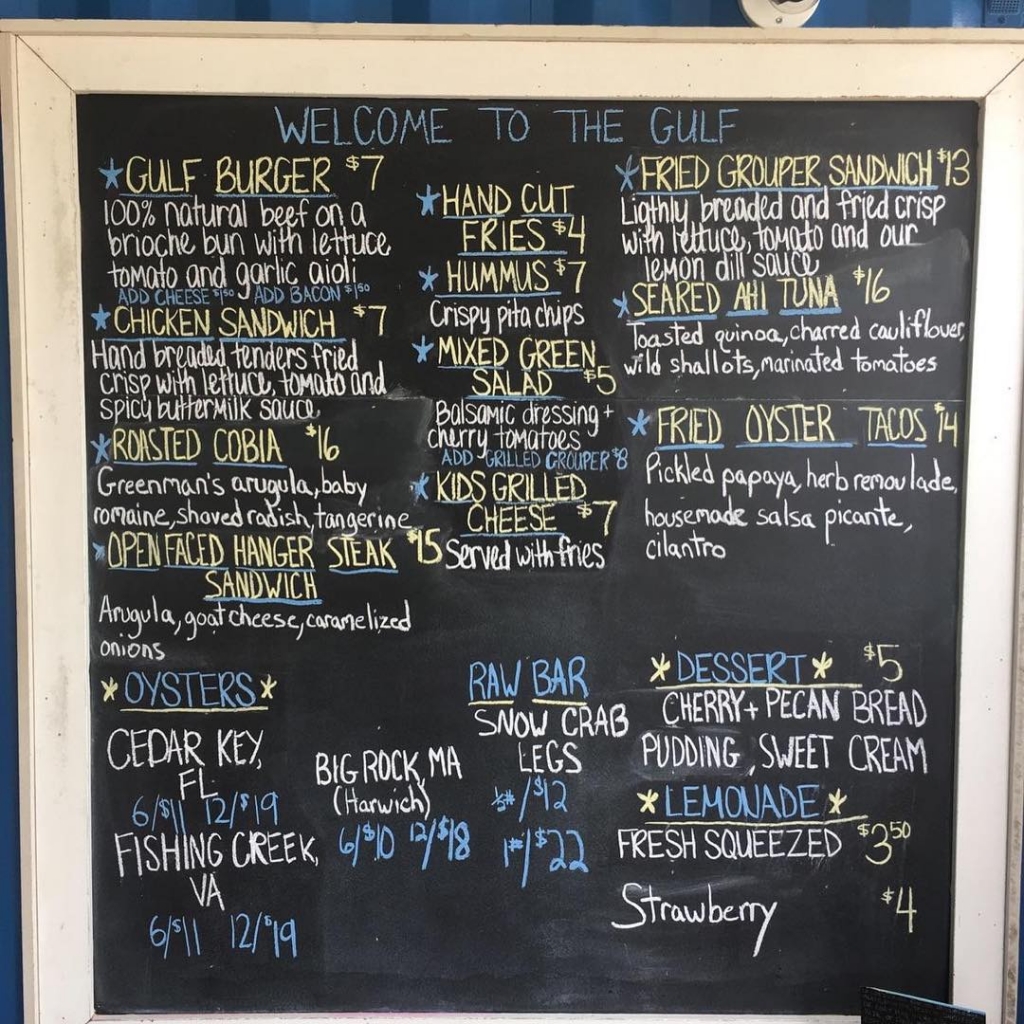 WELCOME TO THE GULF
GULF BURGER $7
100% natural beef on a
brioche bun with lettuce
tomato and garlic aioli
ADD CHEESE $1.50 ADD BACON $1.50
CHICKEN SANDWICH $7
Hand breaded tenders fried
crisp with lettuce, tomato and
spicy buttermilk sauce
ROASTED COBIA $16
Greenman's arugula, baby
romaine, shaved radish, tangerine
OPEN FACED HANGER STEAK $15
SANDWICH
Arugula, goat cheese, caramelized
onions
HAND CUT
FRIES $4
HUMMUS $7
Crispy pita chips
MIXED GREEN
SALAD $5
Balsamic dressing +
cherry tomatoes
ADD GRILLED GROUPER $8
KIDS GRILLED
CHEESE $7
Served with fries
FRIED GROUPER SANDWICH $13
Ligthly breaded and fried crisp
with lettuce, tomato and our
lemon dill sauce
SEARED AHI TUNA $16
Toasted quinoa, charred cauliflower,
wild shallots, marinated tomatoes
FRIED OYSTER TACOS $14
Pickled papaya, herb remoulade,
housemade salsa picante,
cilantro
OYSTERS
CEDAR KEY,
FL
6/$11 12/$19
FISHING CREEK,
VA
6/$11 12/$19
BIG ROCK, MA
(Harwich)
6/$10 12/$18
RAW BAR
SNOW CRAB
LEGS
½#/$12
1#/$22
DESSERT $5
CHERRY + PECAN BREAD
PUDDING, SWEET CREAM
LEMONADE
FRESH SQUEEZED $3.50
Strawberry $4